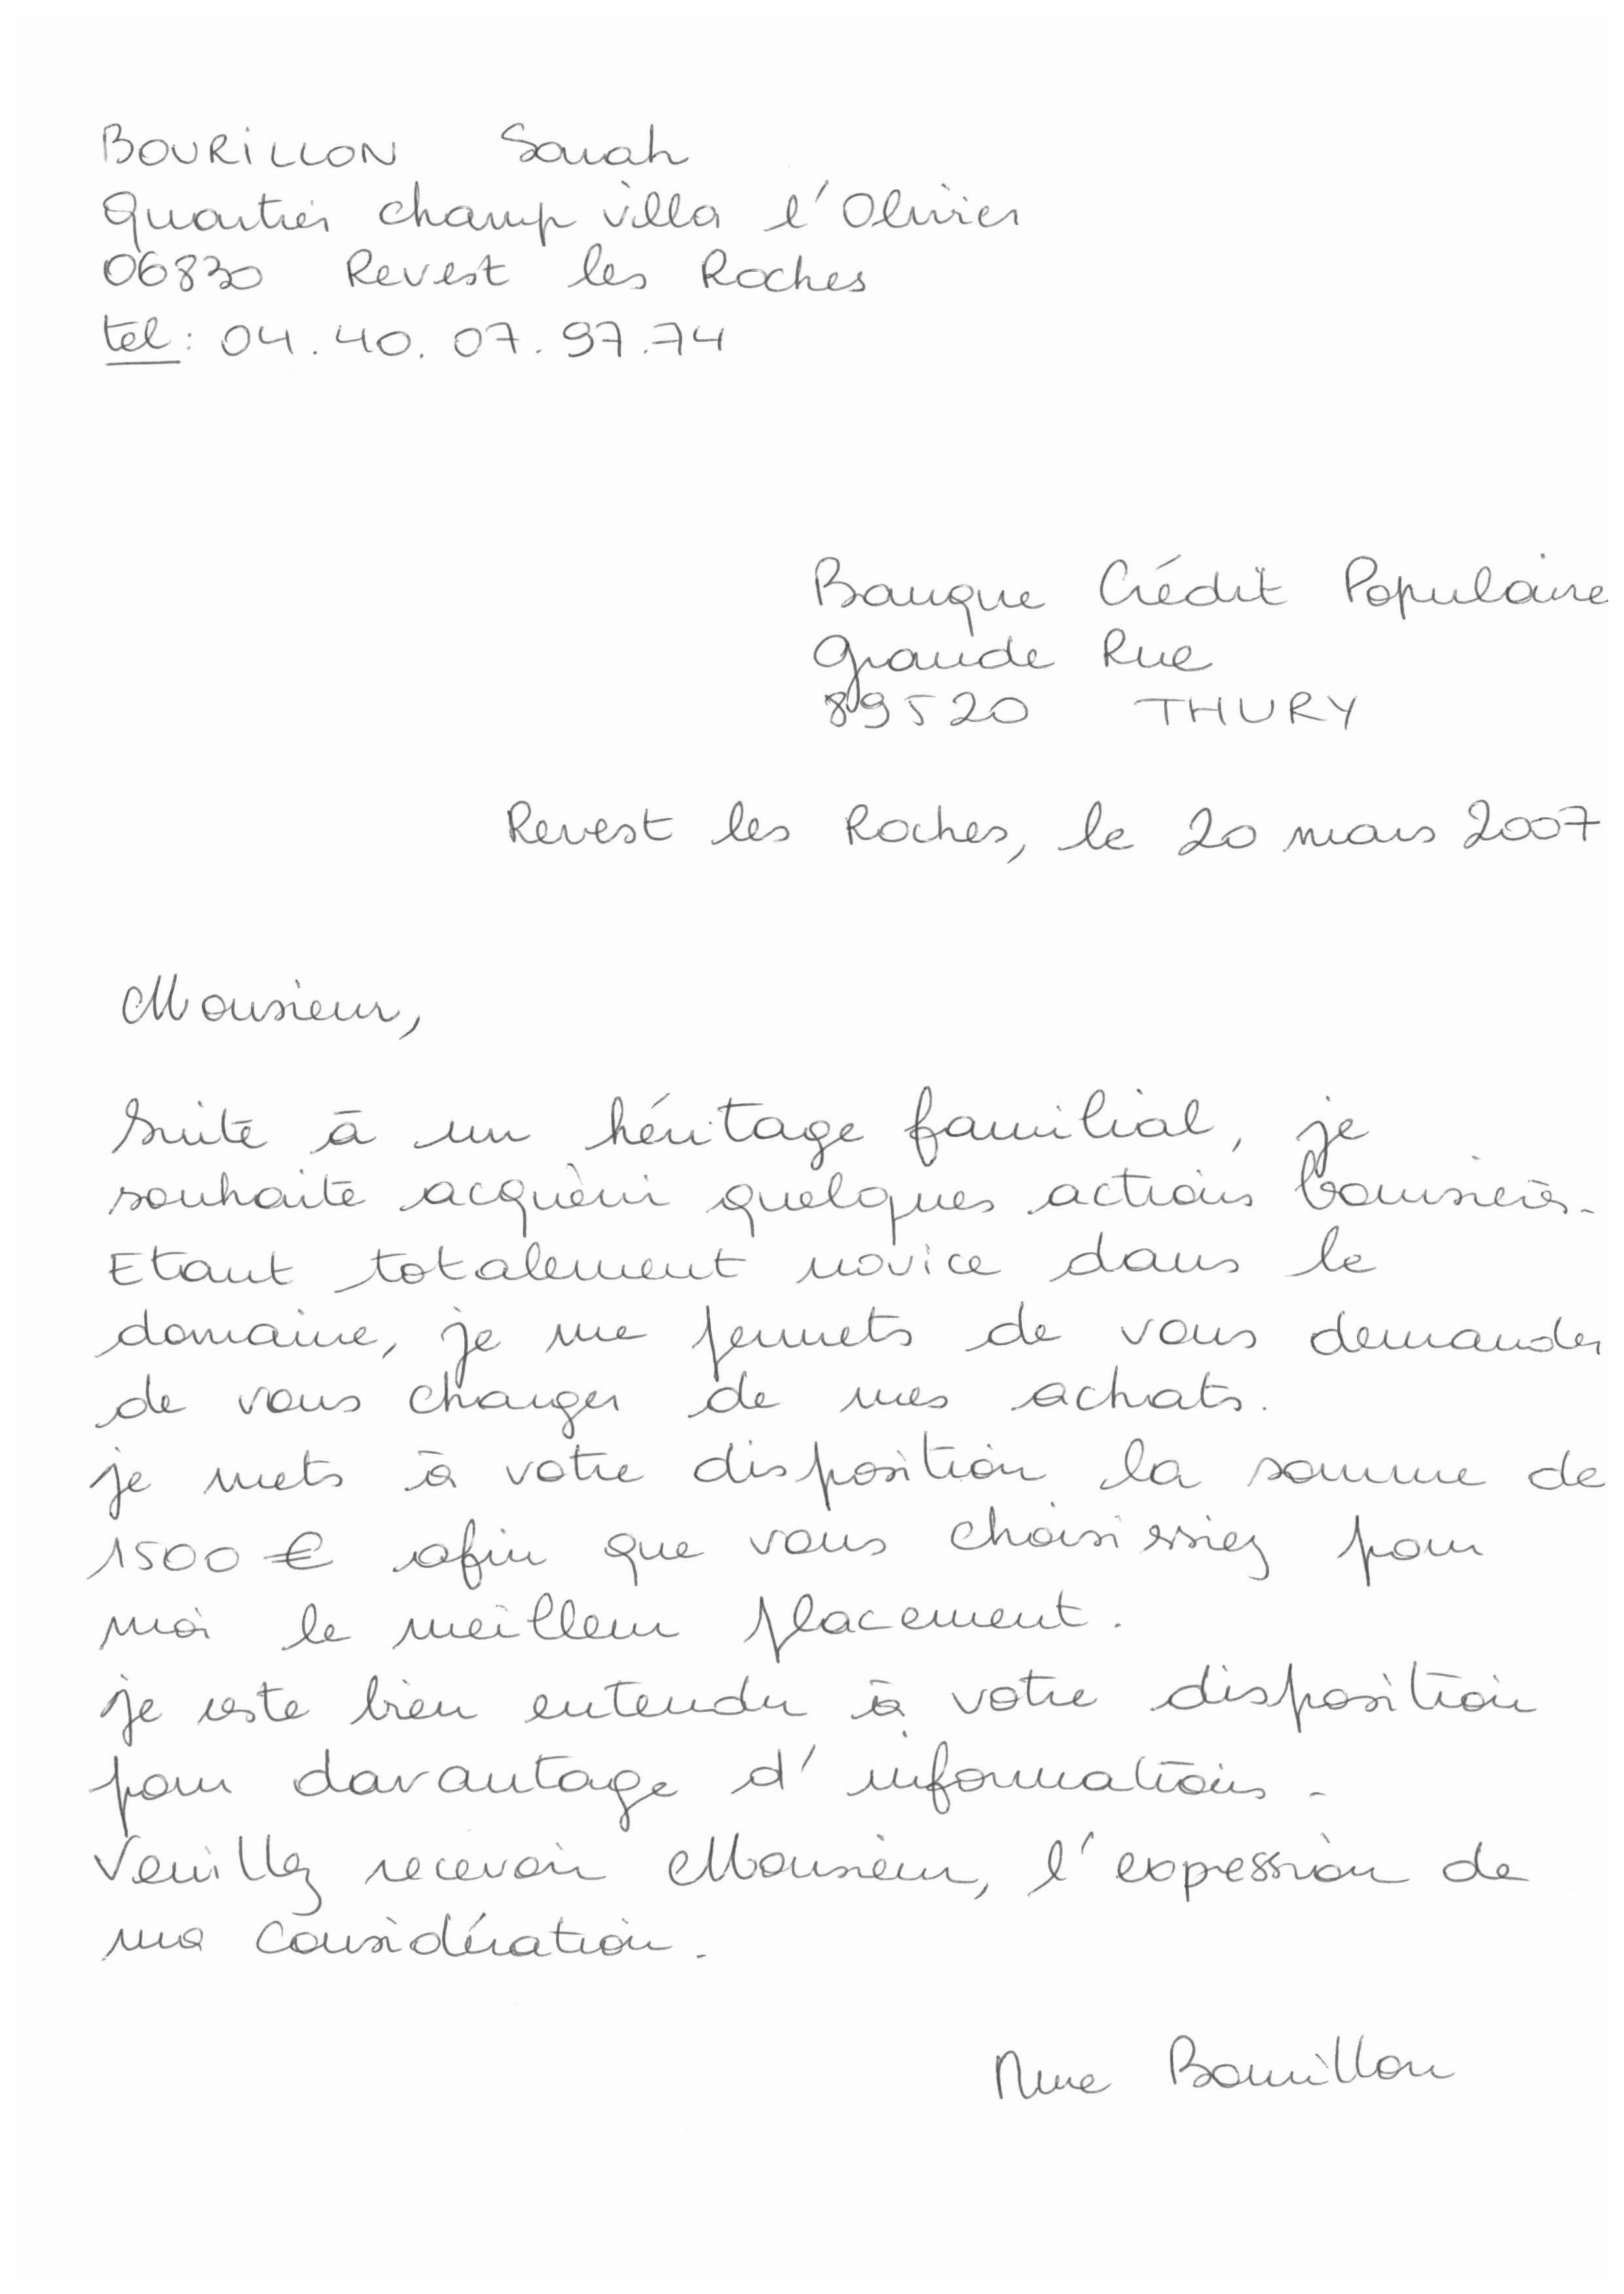 BOURILLON Sarah
Quartier champ villa l'Olivier
06830 Revest les Roches
tel : 04.40.07.97.74
Banque Crédit Populaire
Grande Rue
89520 THURY
Revest les Roches, le 20 mars 2007
Monsieur,
Suite à un héritage familial, je
souhaite acquérir quelques actions boursières.
Etant totalement novice dans le
domaine, je me permets de vous demander
de vous charger de mes achats.
je mets à votre disposition la somme de
1500 € afin que vous choisissiez pour
moi le meilleur placement.
je reste bien entendu à votre disposition
pour davantage d'informations.
Veuillez recevoir Monsieur, l'expression de
ma considération.
Mme Bourillon